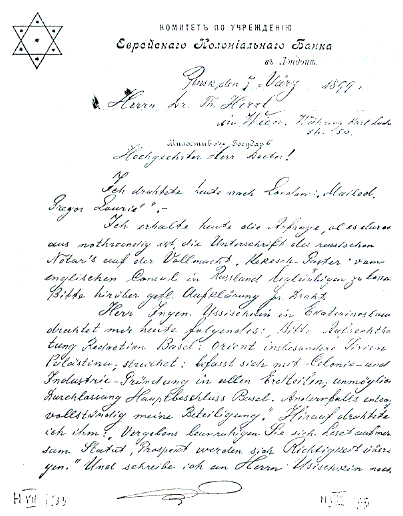 КОМИТЕТЪ ПО УЧРЕЖДЕНІЮ
Еврейскаго Колоніальнаго Банка
въ Лондонѣ.
den 7 März 1899.
Herrn Dr. Th. Herzl
in Wien
Милостивый Государь
Hochgeehrter Herr Doctor!
Ich drahtete heute nach London: „
“.-
Ich erhalte heute die Anfrage, ob es durch-
aus nothwendig ist, die Unterschrift des russischen
Notar's auf der Vollmacht, vom
englischen Consul in Russland beglaubigen zu lassen
Bitte hierüber gefl. Aufklärung
Herr Ingen. Ussischkin in Ekaterinoslaw
drahtet mir heute folgendes: „Bitte Aufrechthal-
tung Redaction Basel: Orient insbesondere Sirien
Palästina, streichet: befasst sich mit Colonie- und
Industrie-Gründung in allen Erdteilen, unmöglich
Durchlassung Hauptbeschluss Basel. Anderenfalls entsage
vollständig meine Beteiligung.“ Hierauf drahtete
ich ihm: „Vergebens beunruhigen Sie sich, leset aufmerk-
sam Statut, Prospect werden sich Richtigkeit über-
gen.“ Und schreibe ich an Herrn Ussischkin noch